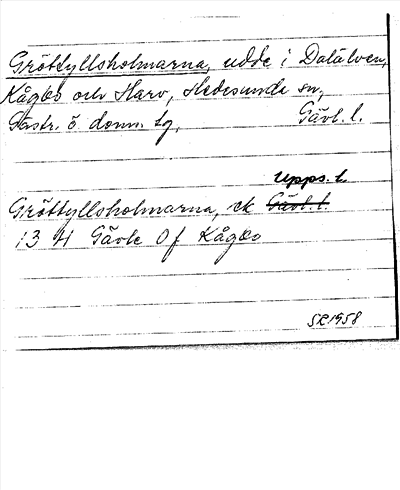 Gröttyllsholmarna, udde i Dalälven,
Kågbo och Harv, Hedesunda sn,
Gästr. ö. doms. tg, Gävl. l.
Upps. l.
Gröttyllsholmarna, ek Gävl. l.
13 4 Gävle Of Kågbo
SR 1958